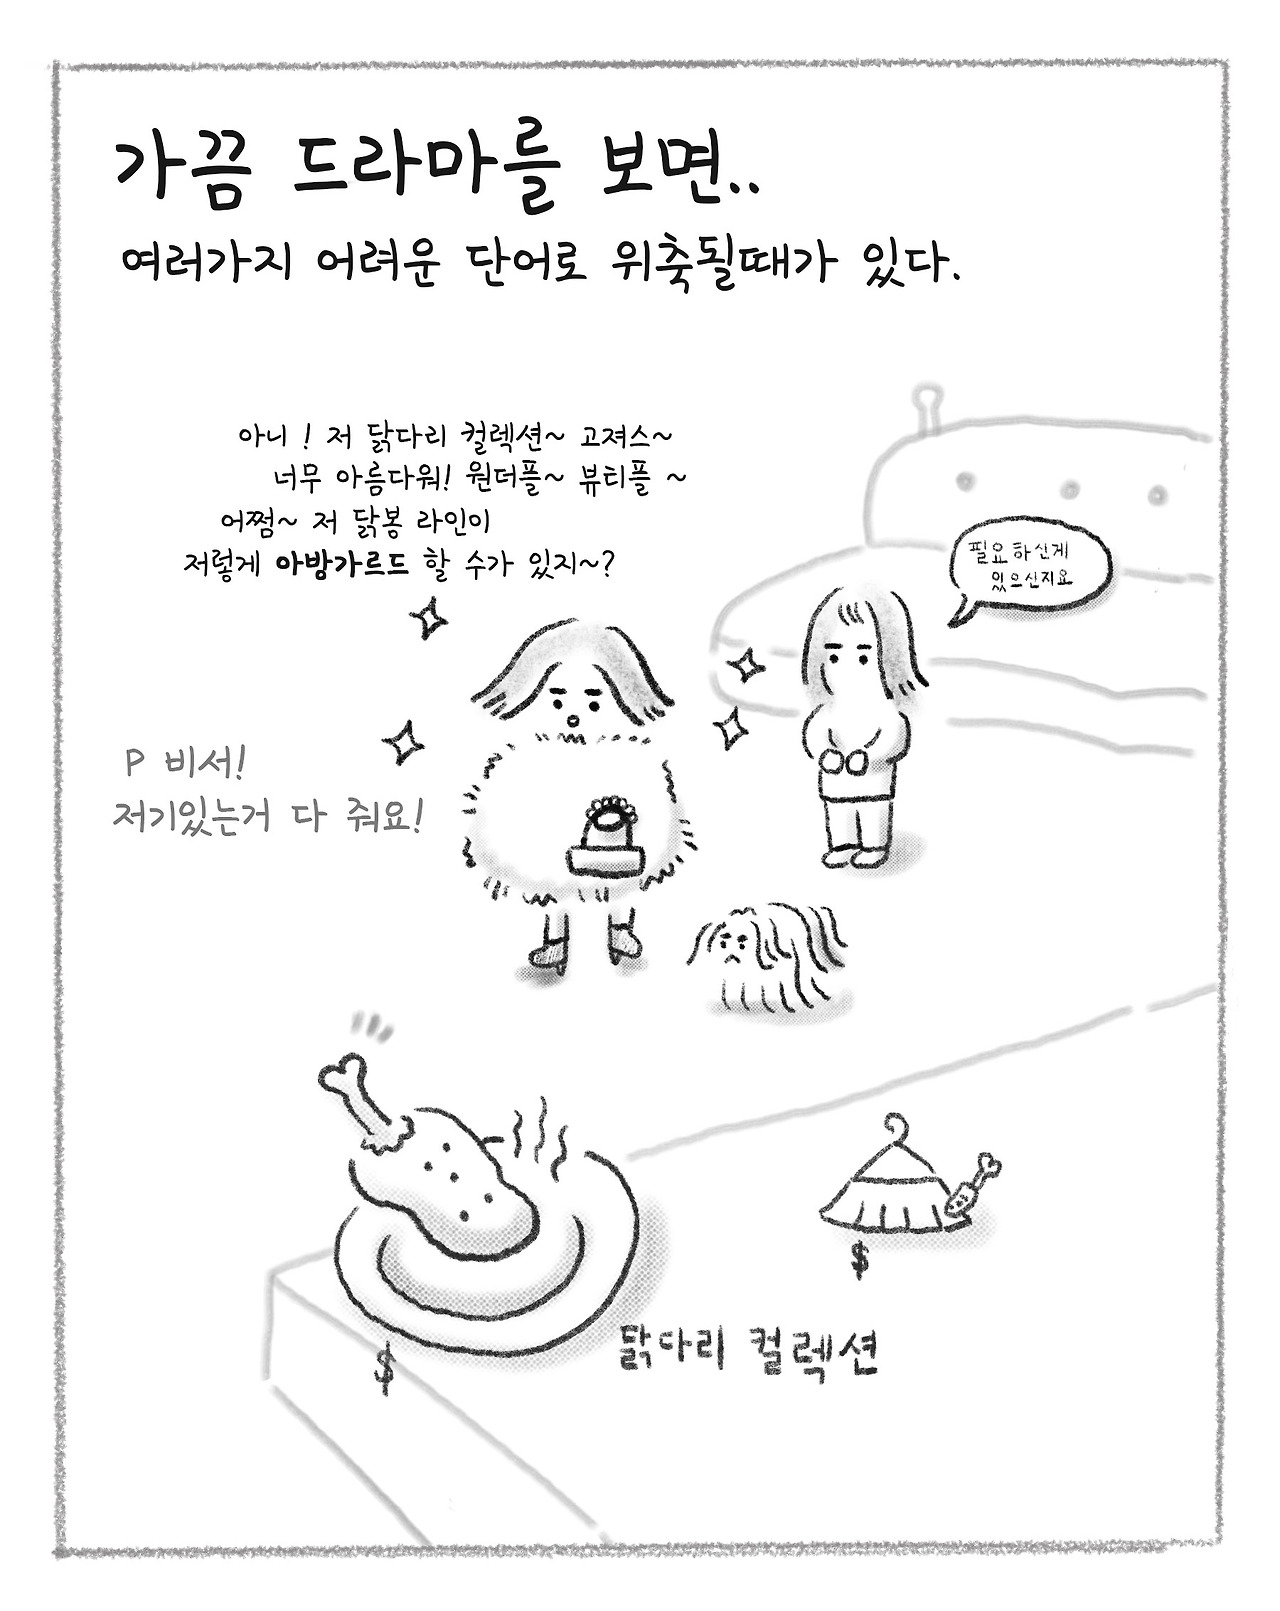 가끔 드라마를 보면..
여러가지 어려운 단어로 위축될때가 있다.
아니 ! 저 닭다리 컬렉션~ 고져스~
너무 아름다워! 원더플~ 뷰티플 ~
어쩜~ 저 닭봉 라인이
저렇게 아방가르드 할 수가 있지~?
필요하신게
있으신지요
P 비서!
저기있는거 다 줘요!
$
$
닭다리 컬렉션